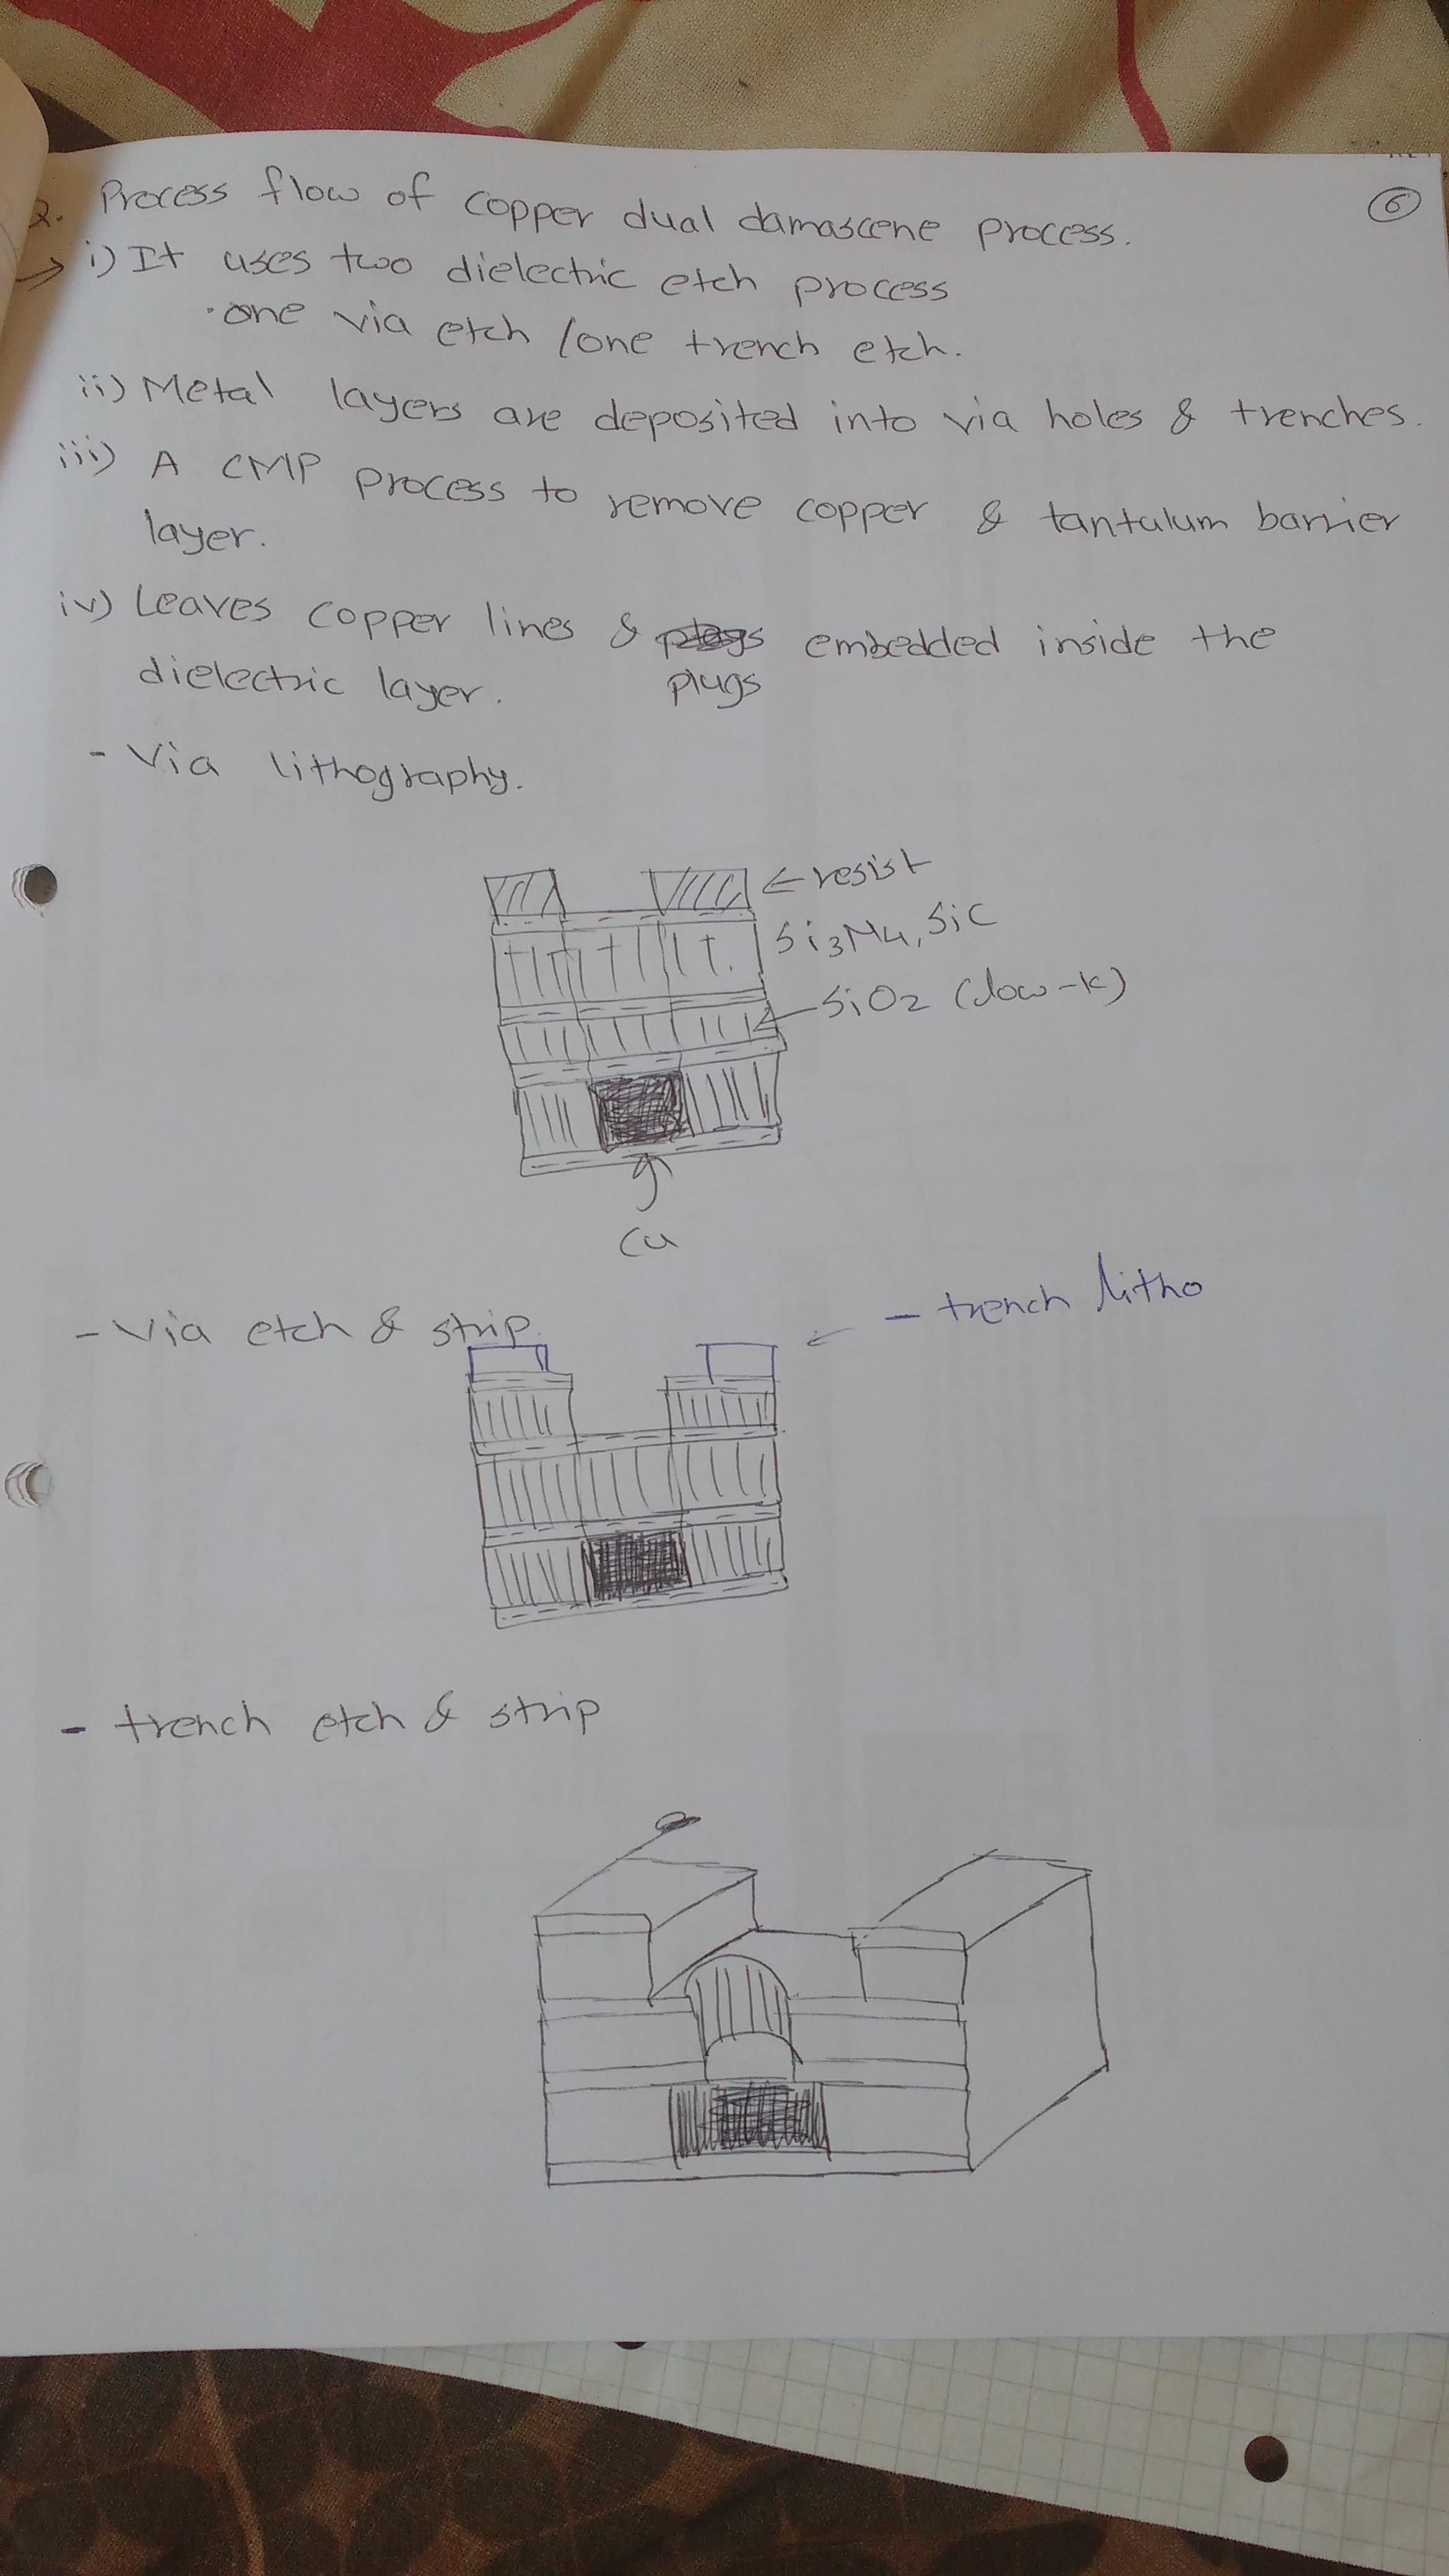 2. Process flow of copper dual damascene process.
6
→ i) It uses two dielectric etch process
· one via etch / one trench etch.
ii) Metal layers are deposited into via holes & trenches.
iii) A CMP process to remove copper & tantalum barrier
layer.
iv) Leaves copper lines & embedded inside the
dielectric layer. plugs
- Via lithography.
← resist
Si3N4, SiC
SiO2 (low-k)
Cu
- Via etch & strip.
- trench litho
- trench etch & strip